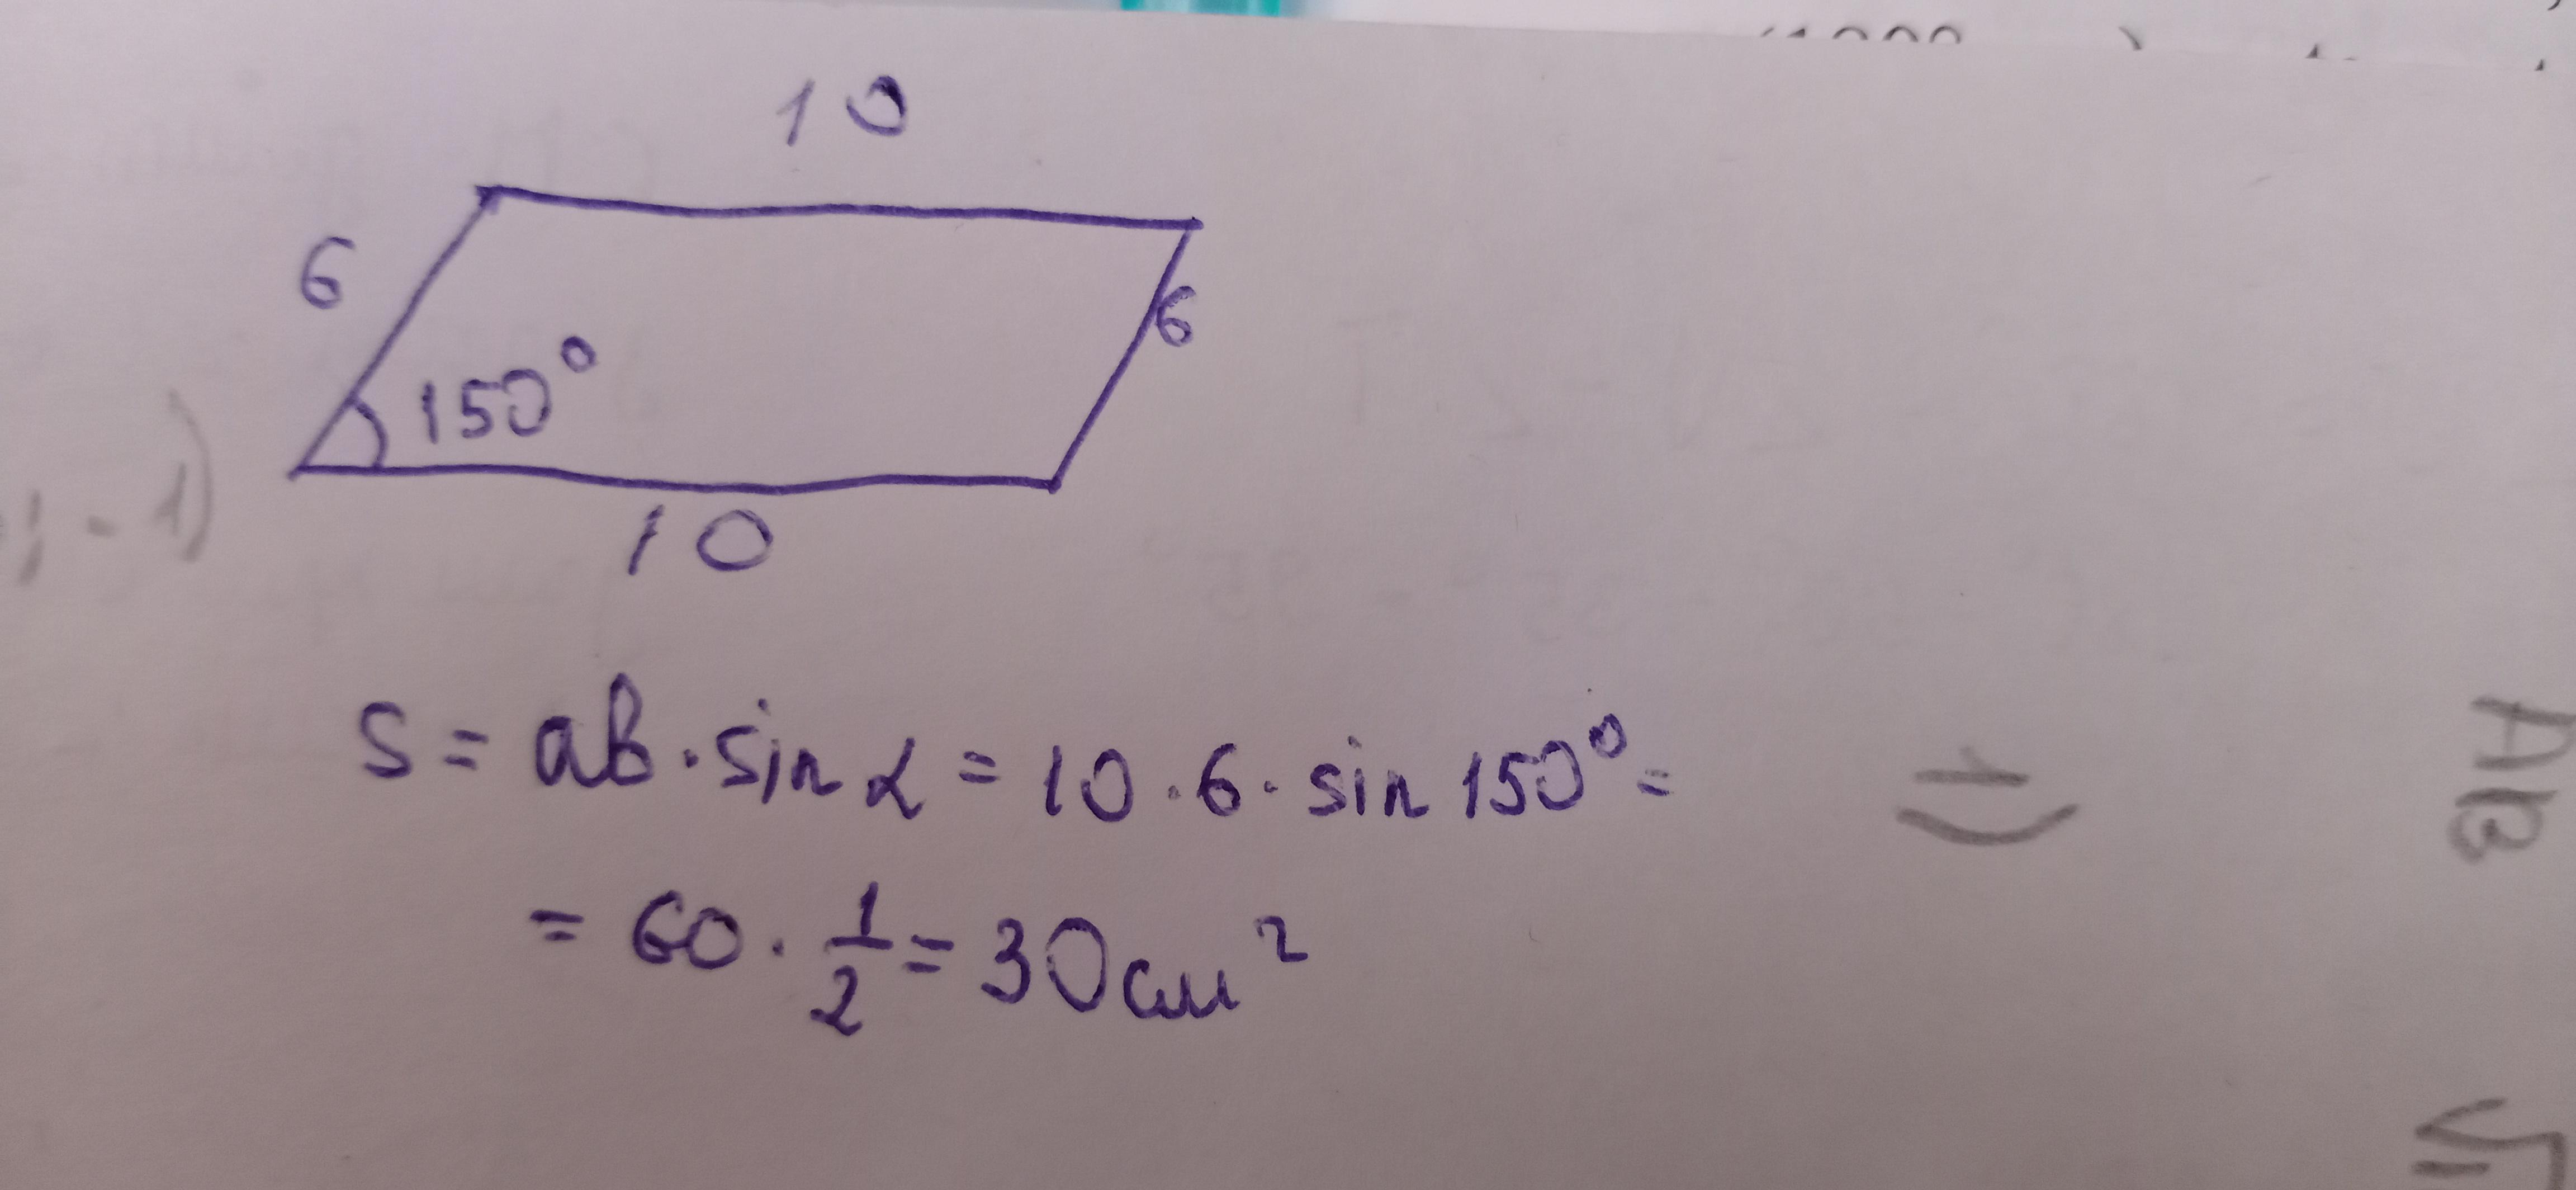 10
6
6
150°
10
S = ab · sin α = 10 · 6 · sin 150° =
= 60 · 1/2 = 30 см²